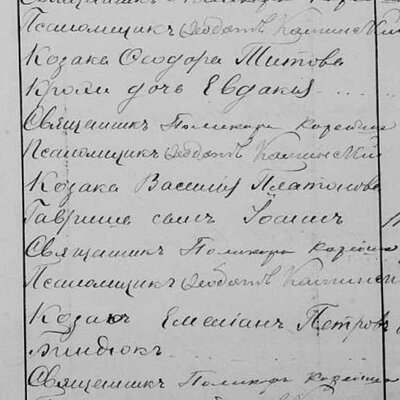 Псаломщикъ Ѳеодотъ Каминскій
Козака Ѳеодора Титова
Кроля дочь Евдакія
Священникъ Поликарпъ
Псаломщикъ Ѳеодотъ Каминскій
Козака Василія Платонова
Гавриша сынъ Іоаннъ
Священникъ Поликарпъ
Псаломщикъ Ѳеодотъ Камински
Козакъ Емеліанъ Петровъ
Священникъ Поликарпъ